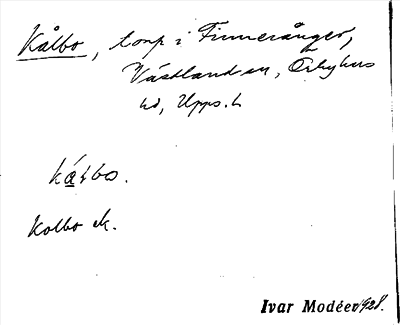 Kålbo, torp i Finnerånger,
Västlands sn, Örbyhus
hd, Upps. l.
kå̱łbo.
Kolbo ek.
Ivar Modéer 1928.